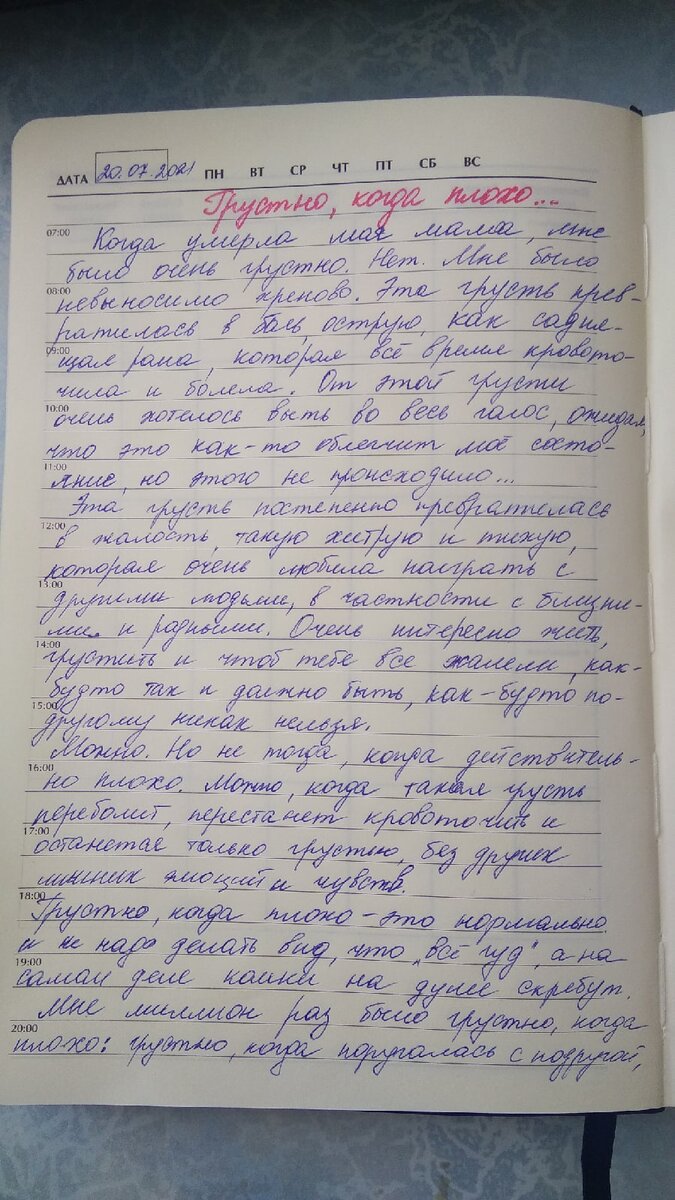 ДАТА 20.07.2021 ПН ВТ СР ЧТ ПТ СБ ВС
Грустно, когда плохо...
07:00
Когда умерла моя мама, мне
было очень грустно. Нет. Мне было
08:00
невыносимо хреново. Эта грусть прев-
ратилась в боль, острую, как садня-
09:00
щая рана, которая всё время кровото-
чила и болела. От этой грусти
10:00
очень хотелось выть во весь голос, ожидая,
что это как-то облегчит моё состо-
11:00
яние, но этого не происходило...
Эта грусть постепенно превратилась
12:00
в жалость, такую хитрую и тихую,
которая очень любила поиграть с
13:00
другими людьми, в частности с ближни-
ми и родными. Очень интересно жить,
14:00
грустить и чтоб тебе все жалели, как-
будто так и должно быть, как-будто по-
15:00
другому никак нельзя.
Можно. Но не тогда, когда действитель-
16:00
но плохо. Можно, когда такая грусть
переболит, перестанет кровоточить и
17:00
останется только грустью, без других
лишних эмоций и чувств.
18:00
Грустно, когда плохо - это нормально
и не надо делать вид, что "всё гуд", а на
19:00
самом деле кошки на душе скребут.
Мне миллион раз было грустно, когда
20:00
плохо: грустно, когда поругалась с подругой,